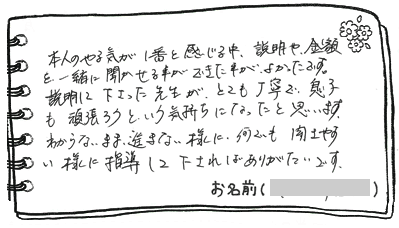 本人のやる気が1番と感じる中、説明や、金額
を一緒に聞かせる事ができた事が、よかったです。
説明して下さった先生が、とても丁寧で、息子
も頑張ろうという気持ちになったと思います。
わからないまま、進まない様に、何でも聞きやす
い様に指導して下さればありがたいです。
お名前(　　　　　)